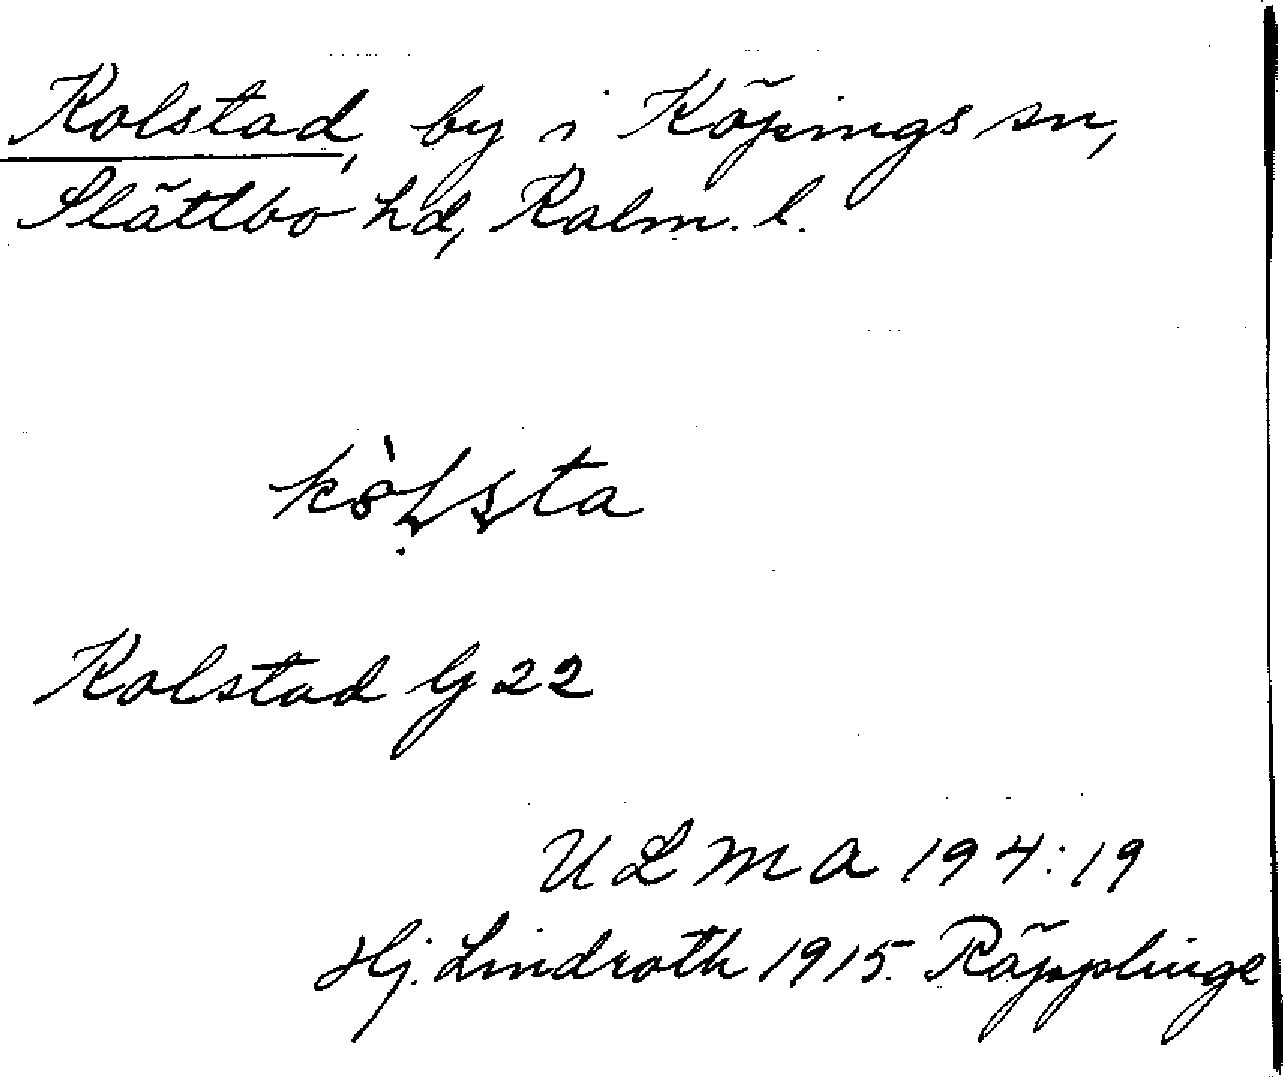 Kolstad, by i Köpings sn,
Slättbo hd, Kalm. l.
kòlsta
Kolstad G 22
ULMA 194:19
Hj. Lindroth 1915. Räpplinge